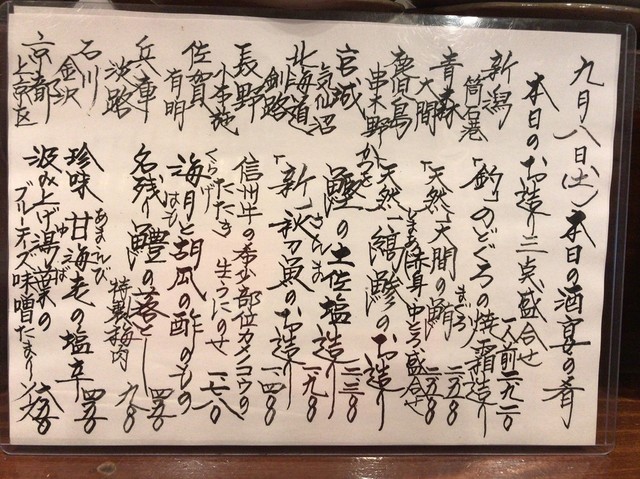 九月八日(土)本日の酒宴の肴
本日のお造り三点盛合せ 一人前 一九一〇
新潟 筒石港 「釣」のどぐろの焼霜造り 二五八〇
青森 大間 「天然」大間の鮪 まぐろ 赤身 中とろ盛合せ 二五八〇
鹿児島 串木野 「天然」縞鯵のお造り
宮城 気仙沼 かつお 鰹の土佐塩造り 一三八〇
北海道 釧路 「新」秋刀魚のお造り さんま 一九八〇
長野 小布施 信州牛の希少部位カイコウの たたき 生うにのせ 一四八〇
佐賀 有明 海月と胡瓜の酢のもの くらげ 一七八〇
兵庫 淡路 名残り鱧の落とし はも 特製梅肉 九八〇
石川 金沢 珍味 甘海老の塩辛 あまえび 四五〇
京都 上京区 汲み上げ湯葉の ゆば ブルーチーズ味噌だまりソース 六五〇